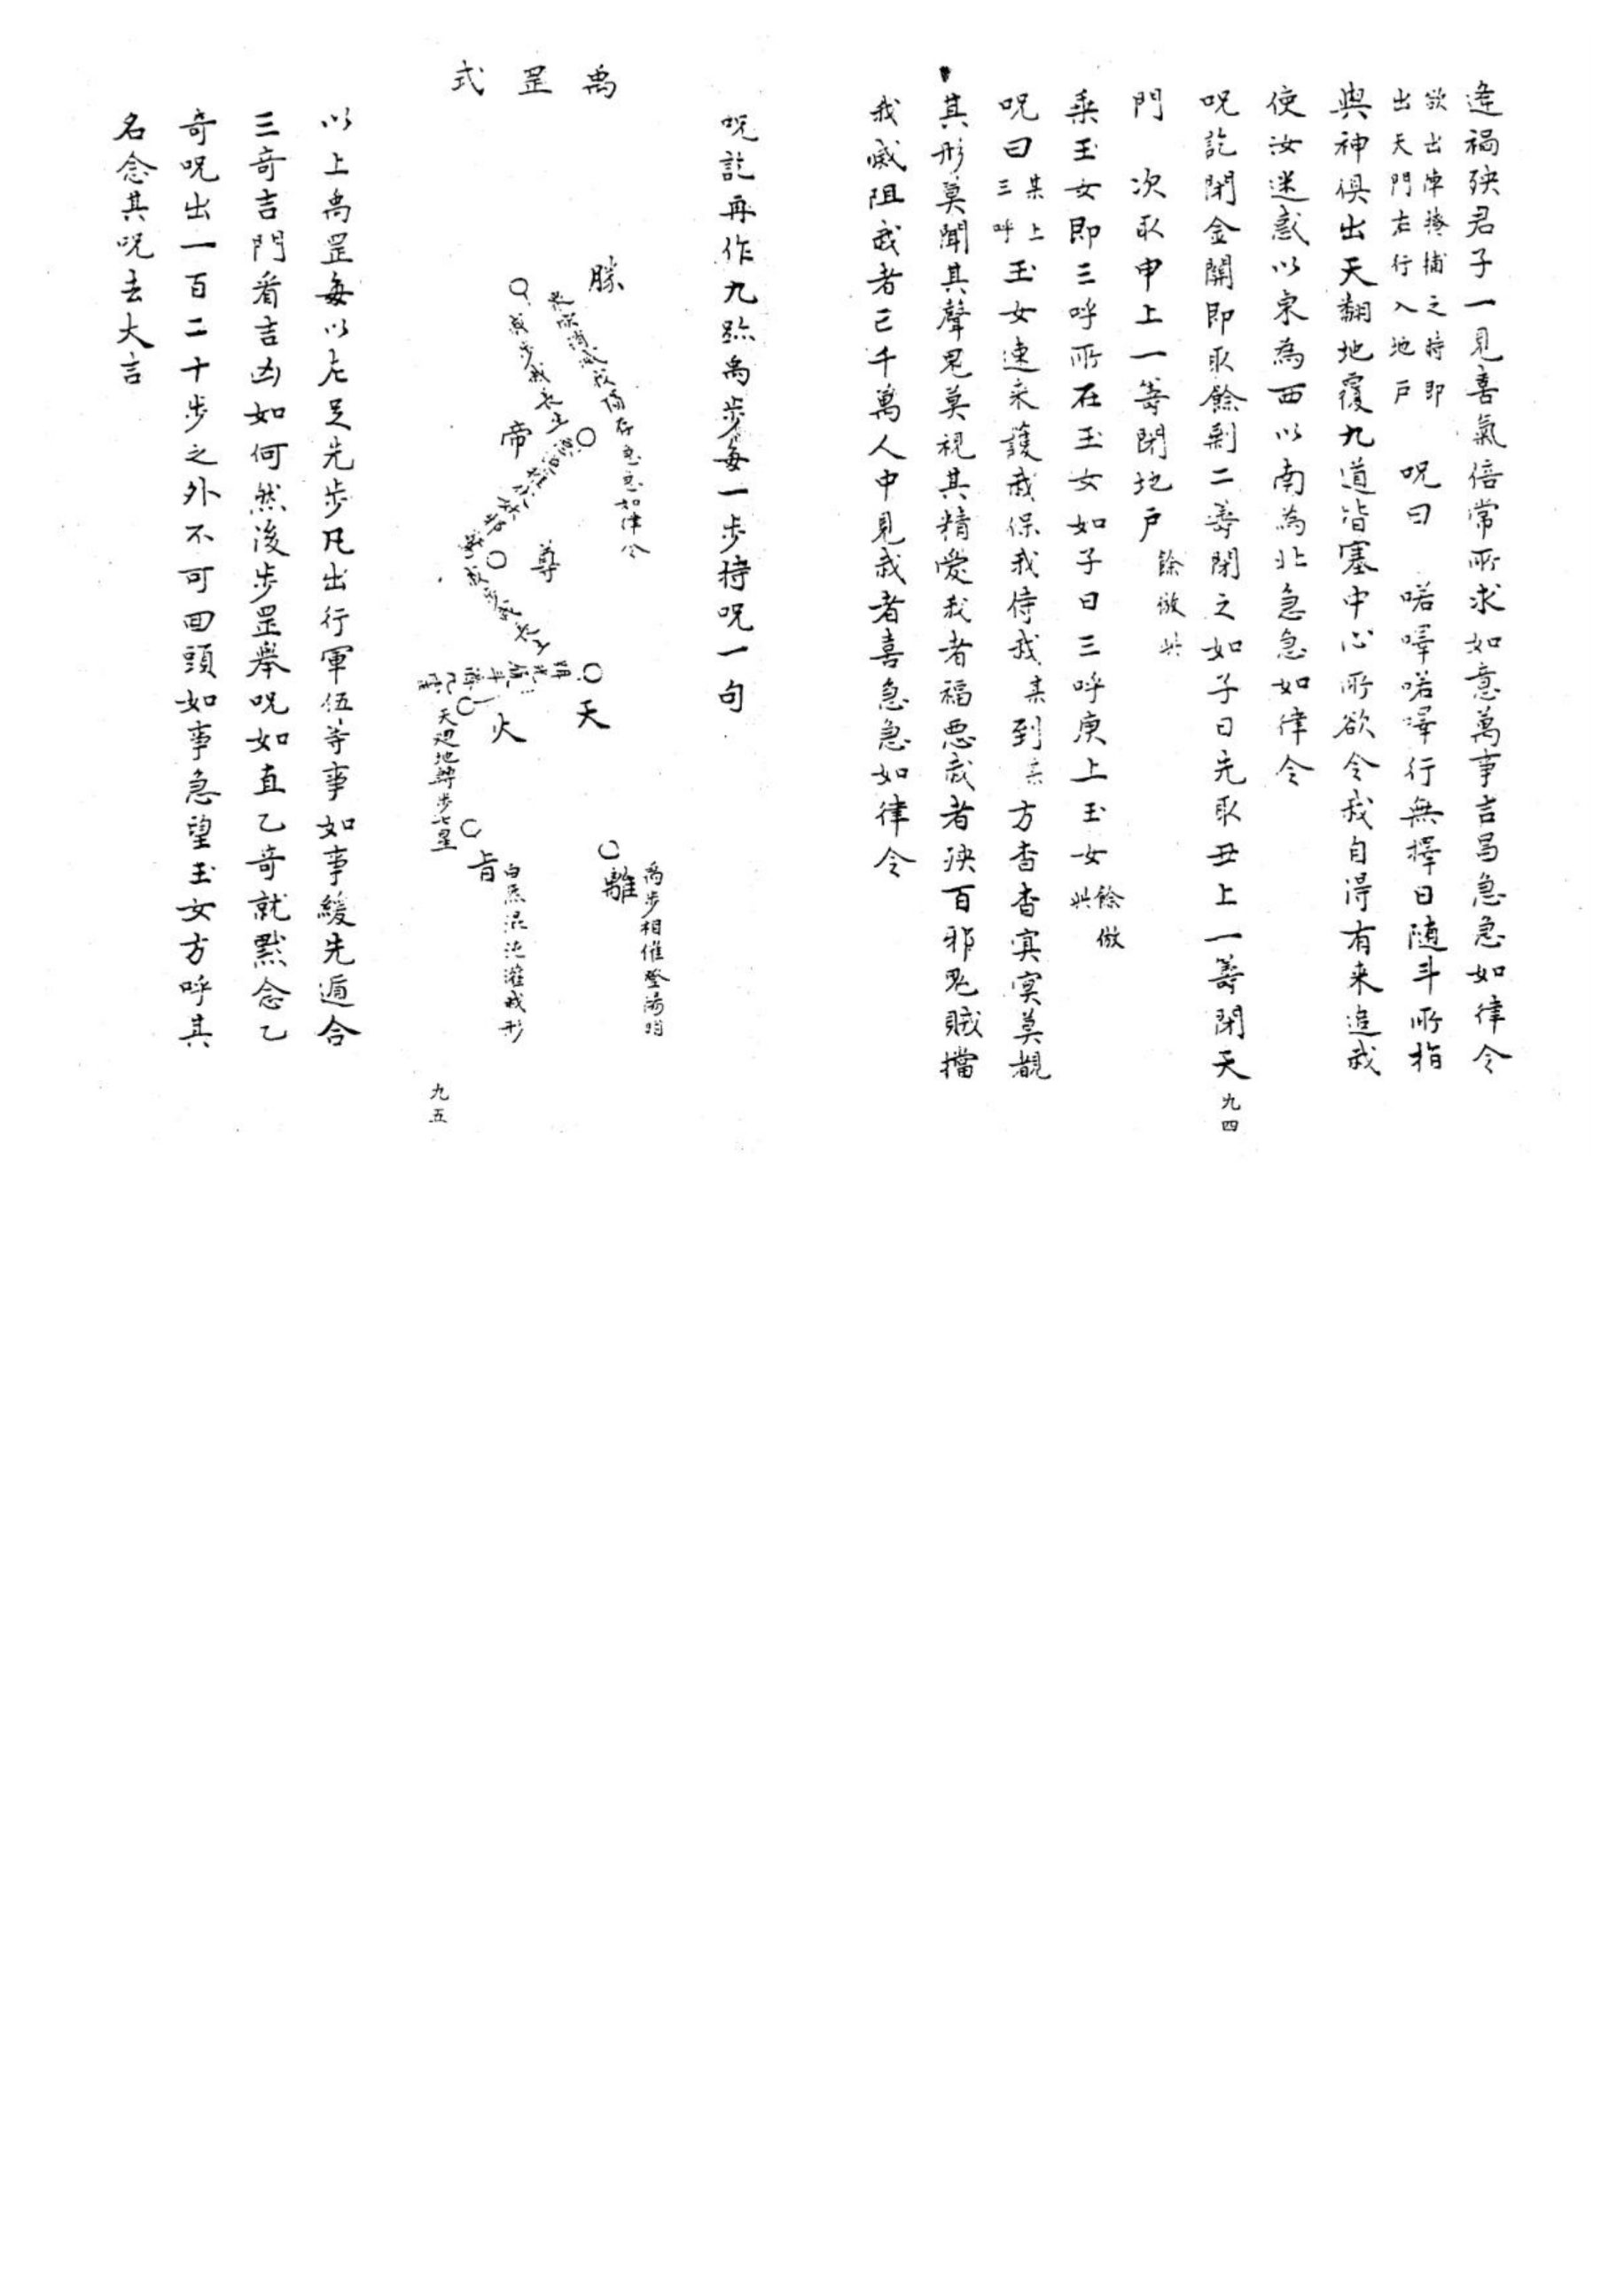 逢禍殃君子一見喜氣倍常所求如意萬事吉昌急急如律令
欲出陣捲捕之時即
出天門左行入地戶
呪曰 喏嗶喏嗶行無擇日随斗所指
與神俱出天翻地覆九道皆塞中心所欲令我自得有来追我
使汝迷惑以東為西以南為北急急如律令
呪訖閉金關即取餘剩二籌閉之如子日先取丑上一籌閉天
九四
門 次取申上一籌閉地戶
餘倣此
乘玉女即三呼所在玉女如子日三呼庚上玉女
餘倣
此
呪曰
某上
三呼
玉女速来護我保我侍我某到某方杳杳冥冥莫覩
其形莫聞其聲鬼莫視其精愛我者福惡我者殃百邪鬼賊擋
我滅阻我者亡千萬人中見我者喜急急如律令
呪訖再作九跡禹步每一步持呪一句
禹罡式
勝
帝
尊
天
火
旨
離
急急如律令
天迴地轉步七星
白炁混沌灌我形
禹步相催登陽明
以上禹罡每以左足先步凡出行軍伍等事如事緩先遁合
三奇吉門看吉凶如何然後步罡舉呪如直乙奇就默念乙
奇呪出一百二十步之外不可回頭如事急望玉女方呼其
名念其呪去大吉
九五